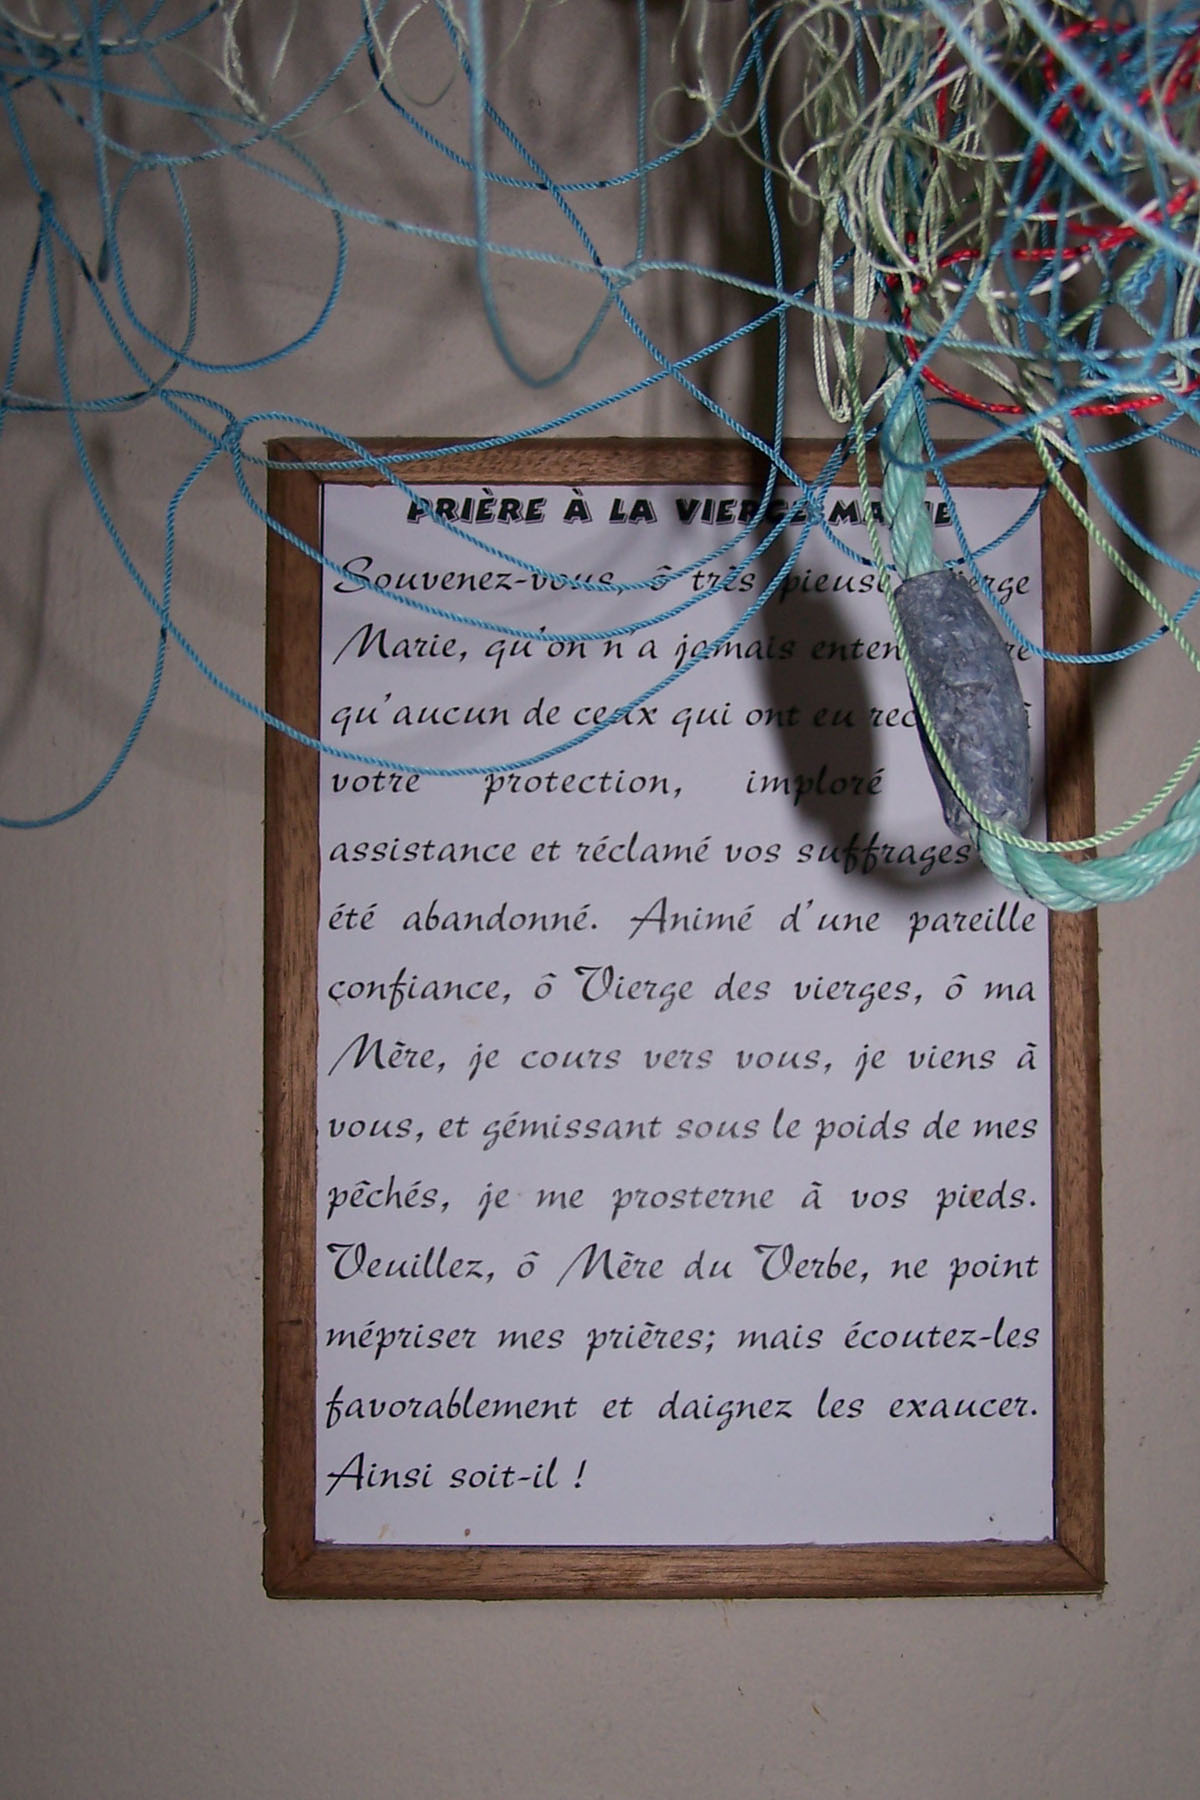 PRIÈRE À LA VIERGE MARIE
Souvenez-vous, ô très pieuse Vierge
Marie, qu'on n'a jamais
qu'aucun de ceux qui ont eu à
votre protection, imploré
assistance et réclamé vos suffrages
été abandonné. Animé d'une pareille
confiance, ô Vierge des vierges, ô ma
Mère, je cours vers vous, je viens à
vous, et gémissant sous le poids de mes
péchés, je me prosterne à vos pieds.
Veuillez, ô Mère du Verbe, ne point
mépriser mes prières; mais écoutez-les
favorablement et daignez les exaucer.
Ainsi soit-il !